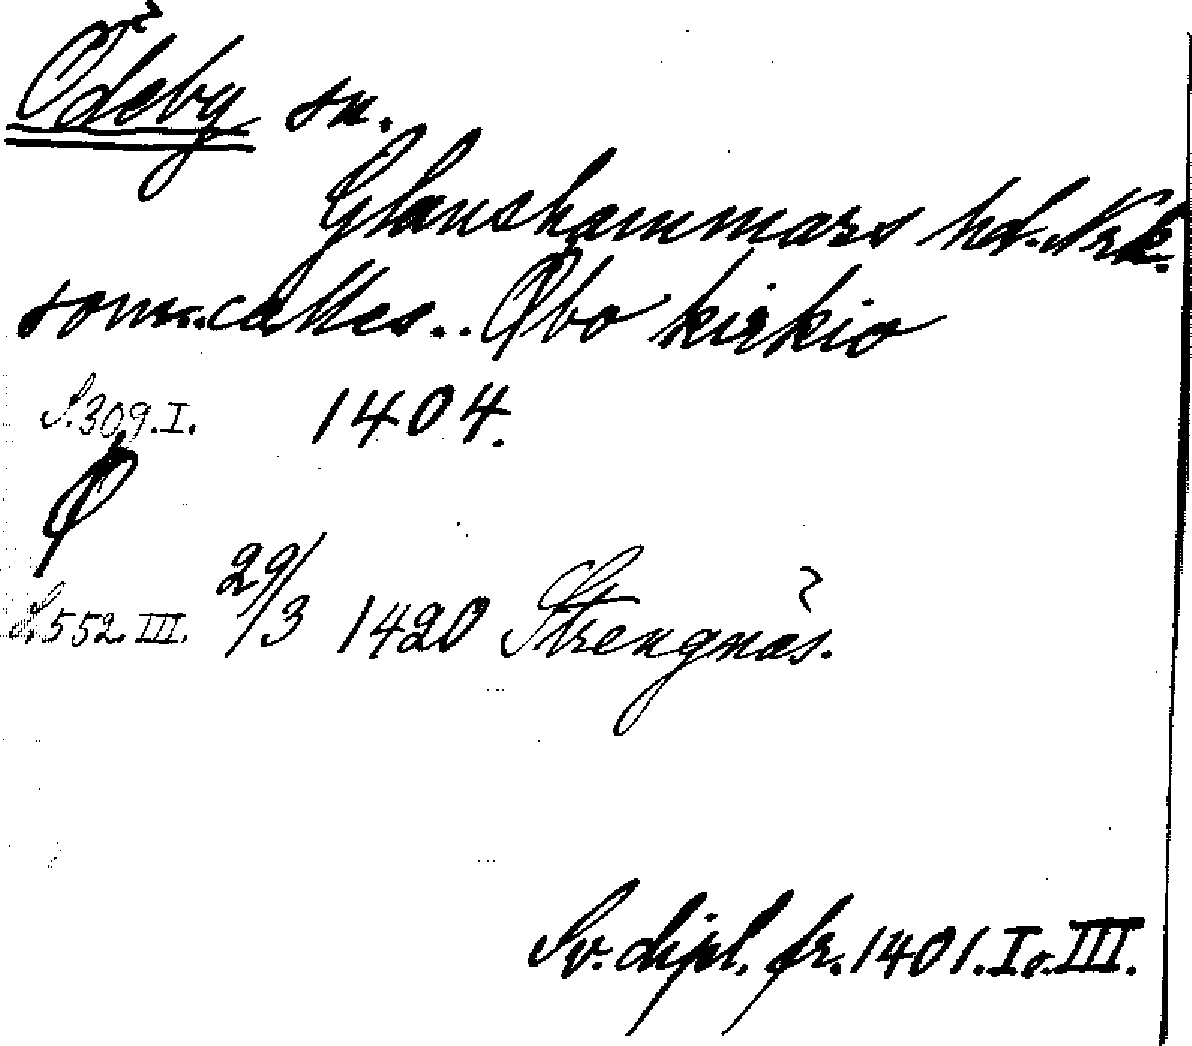 Ödeby sn.
Glanshammars hd. Nrk.
som. calles.. Øbo kirkio
S. 309. I. 1404.
Ø
S. 552. III. 29/3 1420 Strengnäs.
Sv. dipl. fr. 1401. I o. III.